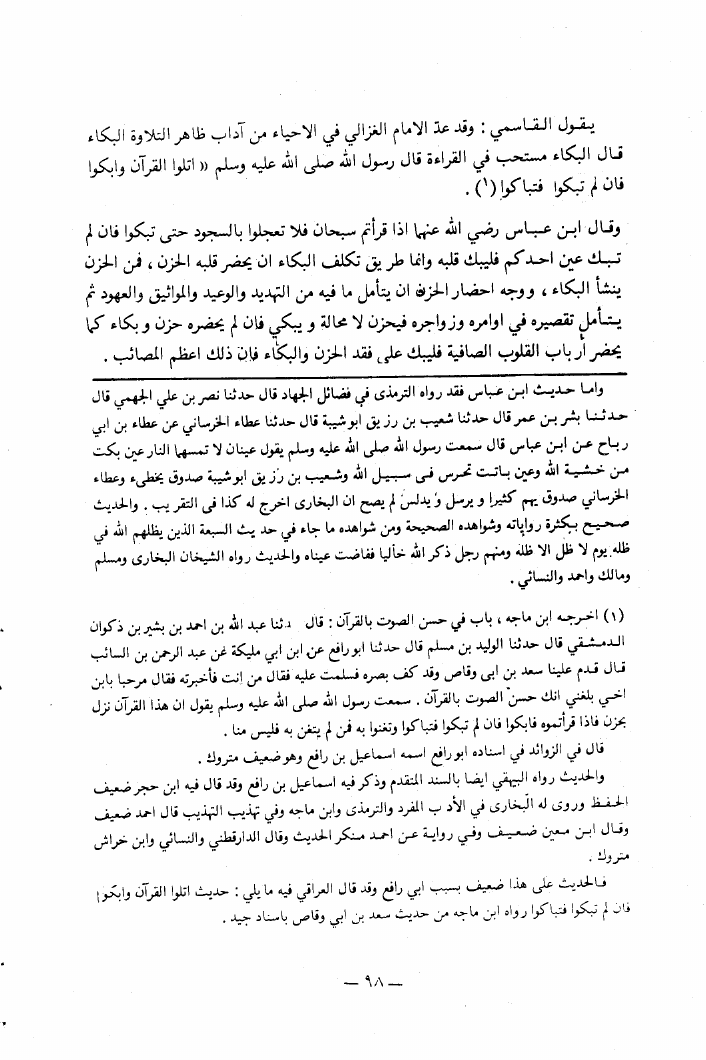 يقول القاسمي : وقد عدّ الامام الغزالي في الاحياء من آداب ظاهر التلاوة البكاء
قال البكاء مستحب في القراءة قال رسول الله صلى الله عليه وسلم « اتلوا القرآن وابكوا
فان لم تبكوا فتباكوا (١) .
وقال ابن عباس رضي الله عنهما اذا قرأتم سبحان فلا تعجلوا بالسجود حتى تبكوا فان لم
تبك عين احدكم فليبك قلبه وانما طريق تكلف البكاء ان يحضر قلبه الحزن ، فمن الحزن
ينشأ البكاء ، ووجه احضار الحزن ان يتأمل ما فيه من التهديد والوعيد والمواثيق والعهود ثم
يتأمل تقصيره في اوامره وزواجره فيحزن لا محالة ويبكي فان لم يحضره حزن وبكاء كما
يحضر أرباب القلوب الصافية فليبك على فقد الحزن والبكاء فإن ذلك اعظم المصائب .
واما حديث ابن عباس فقد رواه الترمذى في فضائل الجهاد قال حدثنا نصر بن علي الجهمي قال
حدثنا بشر بن عمر قال حدثنا شعيب بن رزيق ابو شيبة قال حدثنا عطاء الخرساني عن عطاء بن ابي
رباح عن ابن عباس قال سمعت رسول الله صلى الله عليه وسلم يقول عينان لا تمسها النار عين بكت
من خشية الله وعين باتت تحرس فى سبيل الله وشعيب بن رزيق ابو شيبة صدوق يخطىء وعطاء
الخرساني صدوق يهم كثيرا ويرسل ويدلس لم يصح ان البخارى اخرج له كذا فى التقريب . والحديث
صحيح بكثرة رواياته وشواهده الصحيحة ومن شواهده ما جاء في حديث السبعة الذين يظلهم الله في
ظله يوم لا ظل الا ظله ومنهم رجل ذكر الله خاليا ففاضت عيناه والحديث رواه الشيخان البخارى ومسلم
ومالك واحمد والنسائي .
(١) اخرجه ابن ماجه ، باب في حسن الصوت بالقرآن : قال دثنا عبد الله بن احمد بن بشير بن ذكوان
الدمشقي قال حدثنا الوليد بن مسلم قال حدثنا ابو رافع عن ابن ابي مليكة عن عبد الرحمن بن السائب
قال قدم علينا سعد بن ابى وقاص وقد كف بصره فسلمت عليه فقال من انت فأخبرته فقال مرحبا بابن
اخي بلغني انك حسن الصوت بالقرآن . سمعت رسول الله صلى الله عليه وسلم يقول ان هذا القرآن نزل
بحزن فاذا قرأتموه فابكوا فان لم تبكوا فتباكوا وتغنوا به فمن لم يتغن به فليس منا .
قال في الزوائد في اسناده ابو رافع اسمه اسماعيل بن رافع وهو ضعيف متروك .
والحديث رواه البيهقي ايضا بالسند المتقدم وذكر فيه اسماعيل بن رافع وقد قال فيه ابن حجر ضعيف
الحفظ وروى له البخارى في الأدب المفرد والترمذى وابن ماجه وفي تهذيب التهذيب قال احمد ضعيف
وقال ابن معين ضعيف وفي رواية عن احمد منكر الحديث وقال الدارقطني والنسائي وابن خراش
متروك .
فالحديث على هذا ضعيف بسبب ابي رافع وقد قال العراقي فيه ما يلي : حديث اتلوا القرآن وابكوا
فان لم تبكوا فتباكوا رواه ابن ماجه من حديث سعد بن ابي وقاص باسناد جيد .
— ٩٨ —